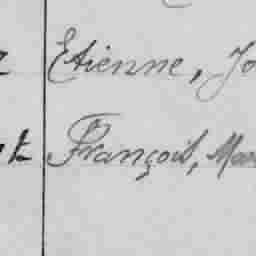 Etienne, Jo
François, Mar